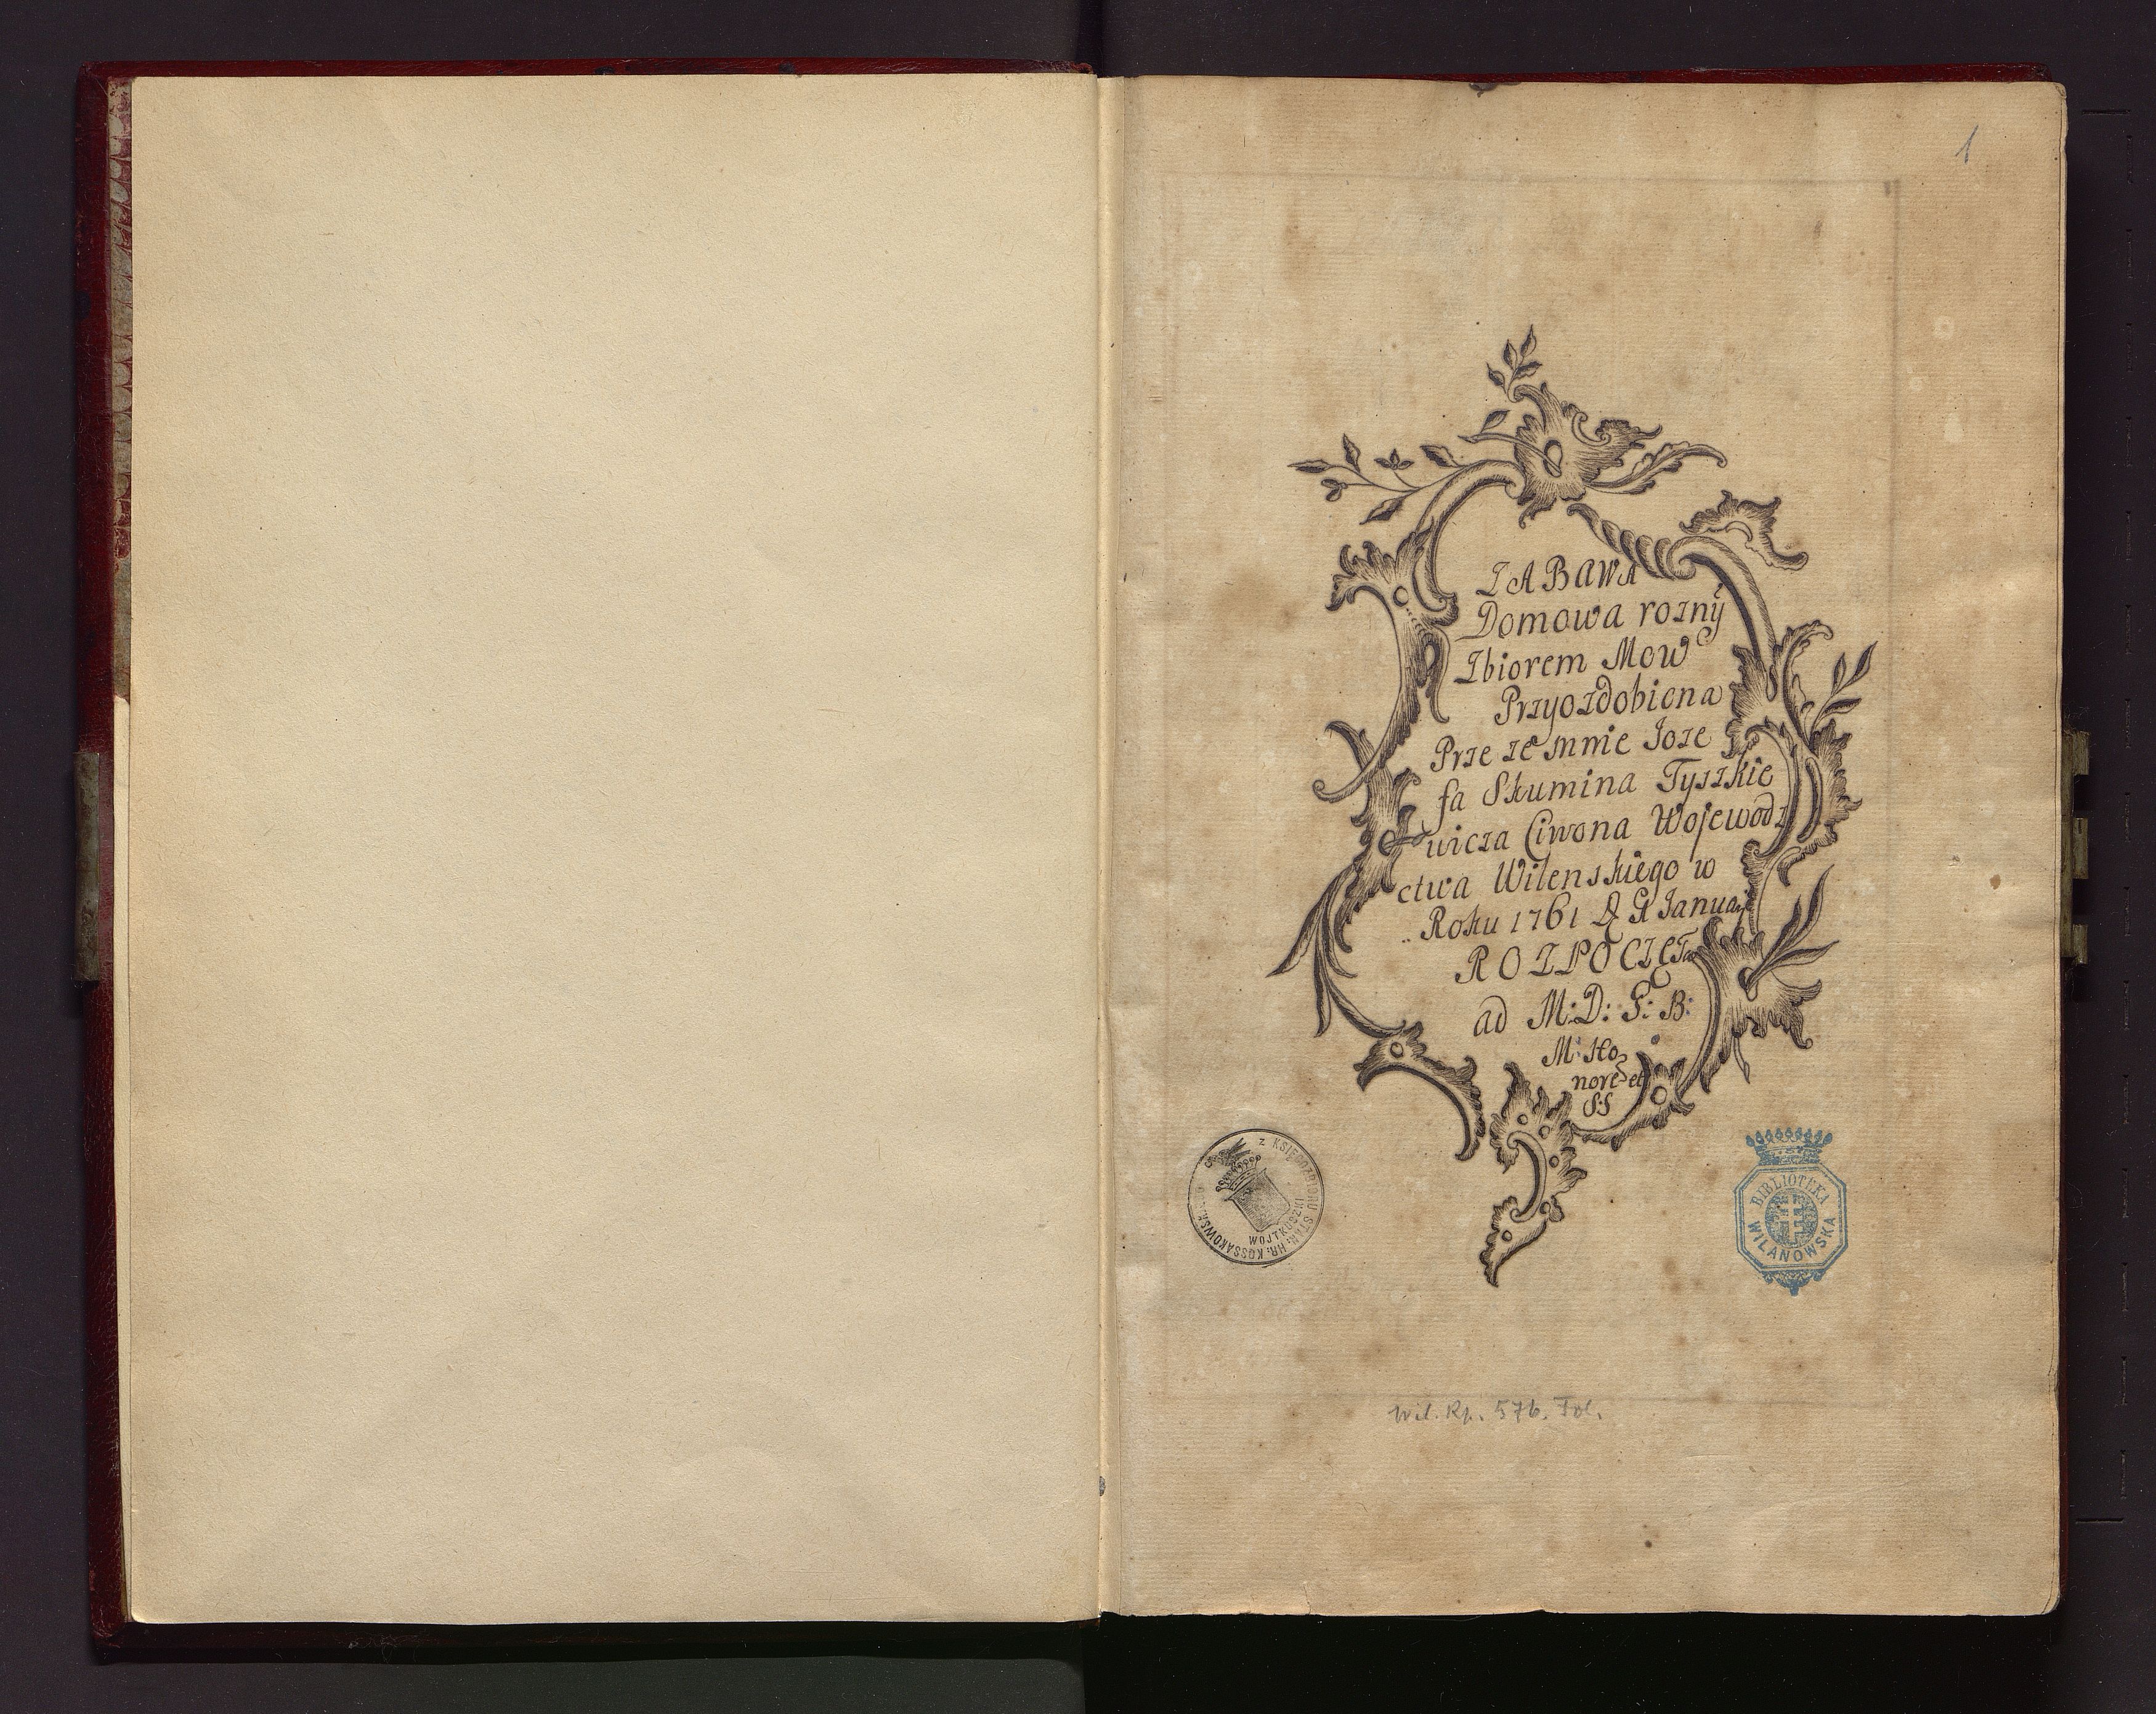 1
ZABAWA
Domowa rozny
Zbiorem Mow
Przyozdobiona
Prze ze mnie Joze
fa Skumina Tyszkie
wicza Ciwona Wojewodz
ctwa Wilenskiego w
Roku 1761 Januarij
ROZPOCZĘTa
ad M: D: G: B:
M: Ho
nore et
S:S
z KSIĘGOZBIORU ST: HR: KOSSAKOWSKIEGO
WOJTKUSZKI
BIBLIOTEKA
WILANOWSKA
Wil. Rp. 576. Fol.